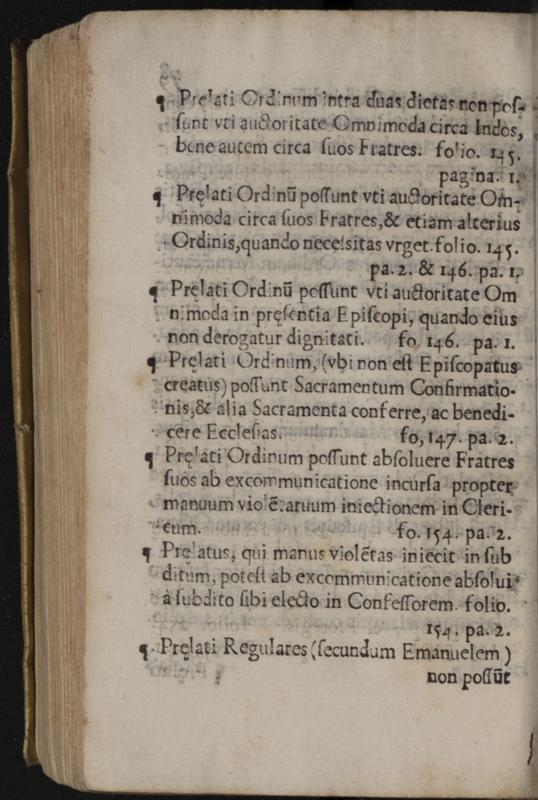 ¶ Pręlati Ordinum intra duas dietas non pos-
sunt vti auctoritate Omnimoda circa Indos,
bene autem circa suos Fratres. folio. 145.
pagina. 1.
¶ Pręlati Ordinū possunt vti auctoritate Om-
nimoda circa suos Fratres,& etiam alterius
Ordinis,quando necessitas vrget.folio. 145.
pa. 2. & 146. pa. 1.
¶ Pręlati Ordinū possunt vti auctoritate Om
nimoda in pręsentia Episcopi, quando eius
non derogatur dignitati. fo. 146. pa. 1.
¶ Pręlati Ordinum, (vbi non est Episcopatus
creatus) possunt Sacramentum Confirmatio-
nis,& alia Sacramenta conferre, ac benedi-
cere Ecclesias. fo, 147. pa. 2.
¶ Pręlati Ordinum possunt absoluere Fratres
suos ab excommunicatione incursa propter
manuum violētarum iniectionem in Cleri-
cum. fo. 154. pa. 2.
¶ Pręlatus, qui manus violētas iniecit in sub
ditum, potest ab excommunicatione absolui
à subdito sibi electo in Confessorem. folio.
154. pa. 2.
¶ Pręlati Regulares (secundum Emanuelem)
non possūt